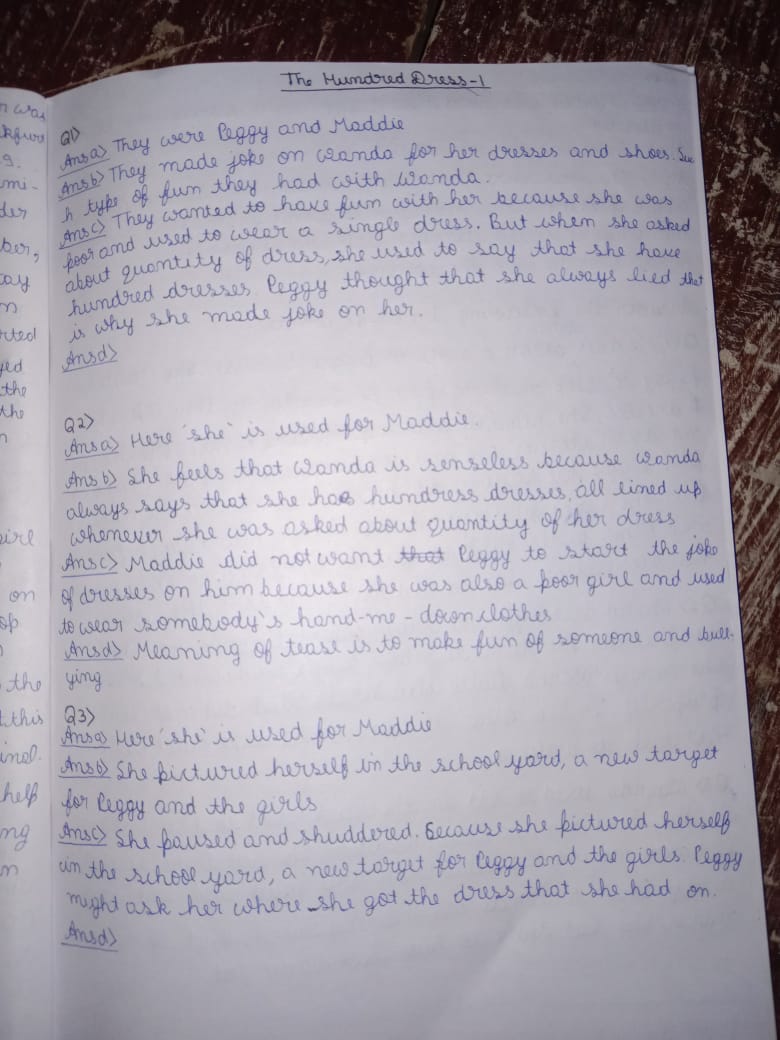 The Hundred Dress-1
Q1>
Ansa> They were Peggy and Maddie
Ansb> They made joke on Wanda for her dresses and shoes. Suc
h type of fun they had with Wanda.
Ansc> They wanted to have fun with her because she was
poor and used to wear a single dress. But when she asked
about quantity of dress, she used to say that she have
hundred dresses. Peggy thought that she always lied that
is why she made joke on her.
Ansd>
Q2>
Ansa> Here 'she' is used for Maddie.
Ansb> She feels that Wanda is senseless because Wanda
always says that she has hundress dresses, all lined up
whenever she was asked about quantity of her dress
Ansc> Maddie did not want that Peggy to start the joke
of dresses on him because she was also a poor girl and used
to wear somebody's hand-me-down clothes
Ansd> Meaning of tease is to make fun of someone and bull-
ying
Q3>
Ansa> Here 'she' is used for Maddie
Ansb> She pictured herself in the school yard, a new target
for Peggy and the girls
Ansc> She paused and shuddered. Because she pictured herself
in the school yard, a new target for Peggy and the girls. Peggy
might ask her where she got the dress that she had on.
Ansd>
was
9.
mi-
der
ber,
ay
n
rted
yed
the
the
n
girl
on
op
the
this
inal.
help
ng
n